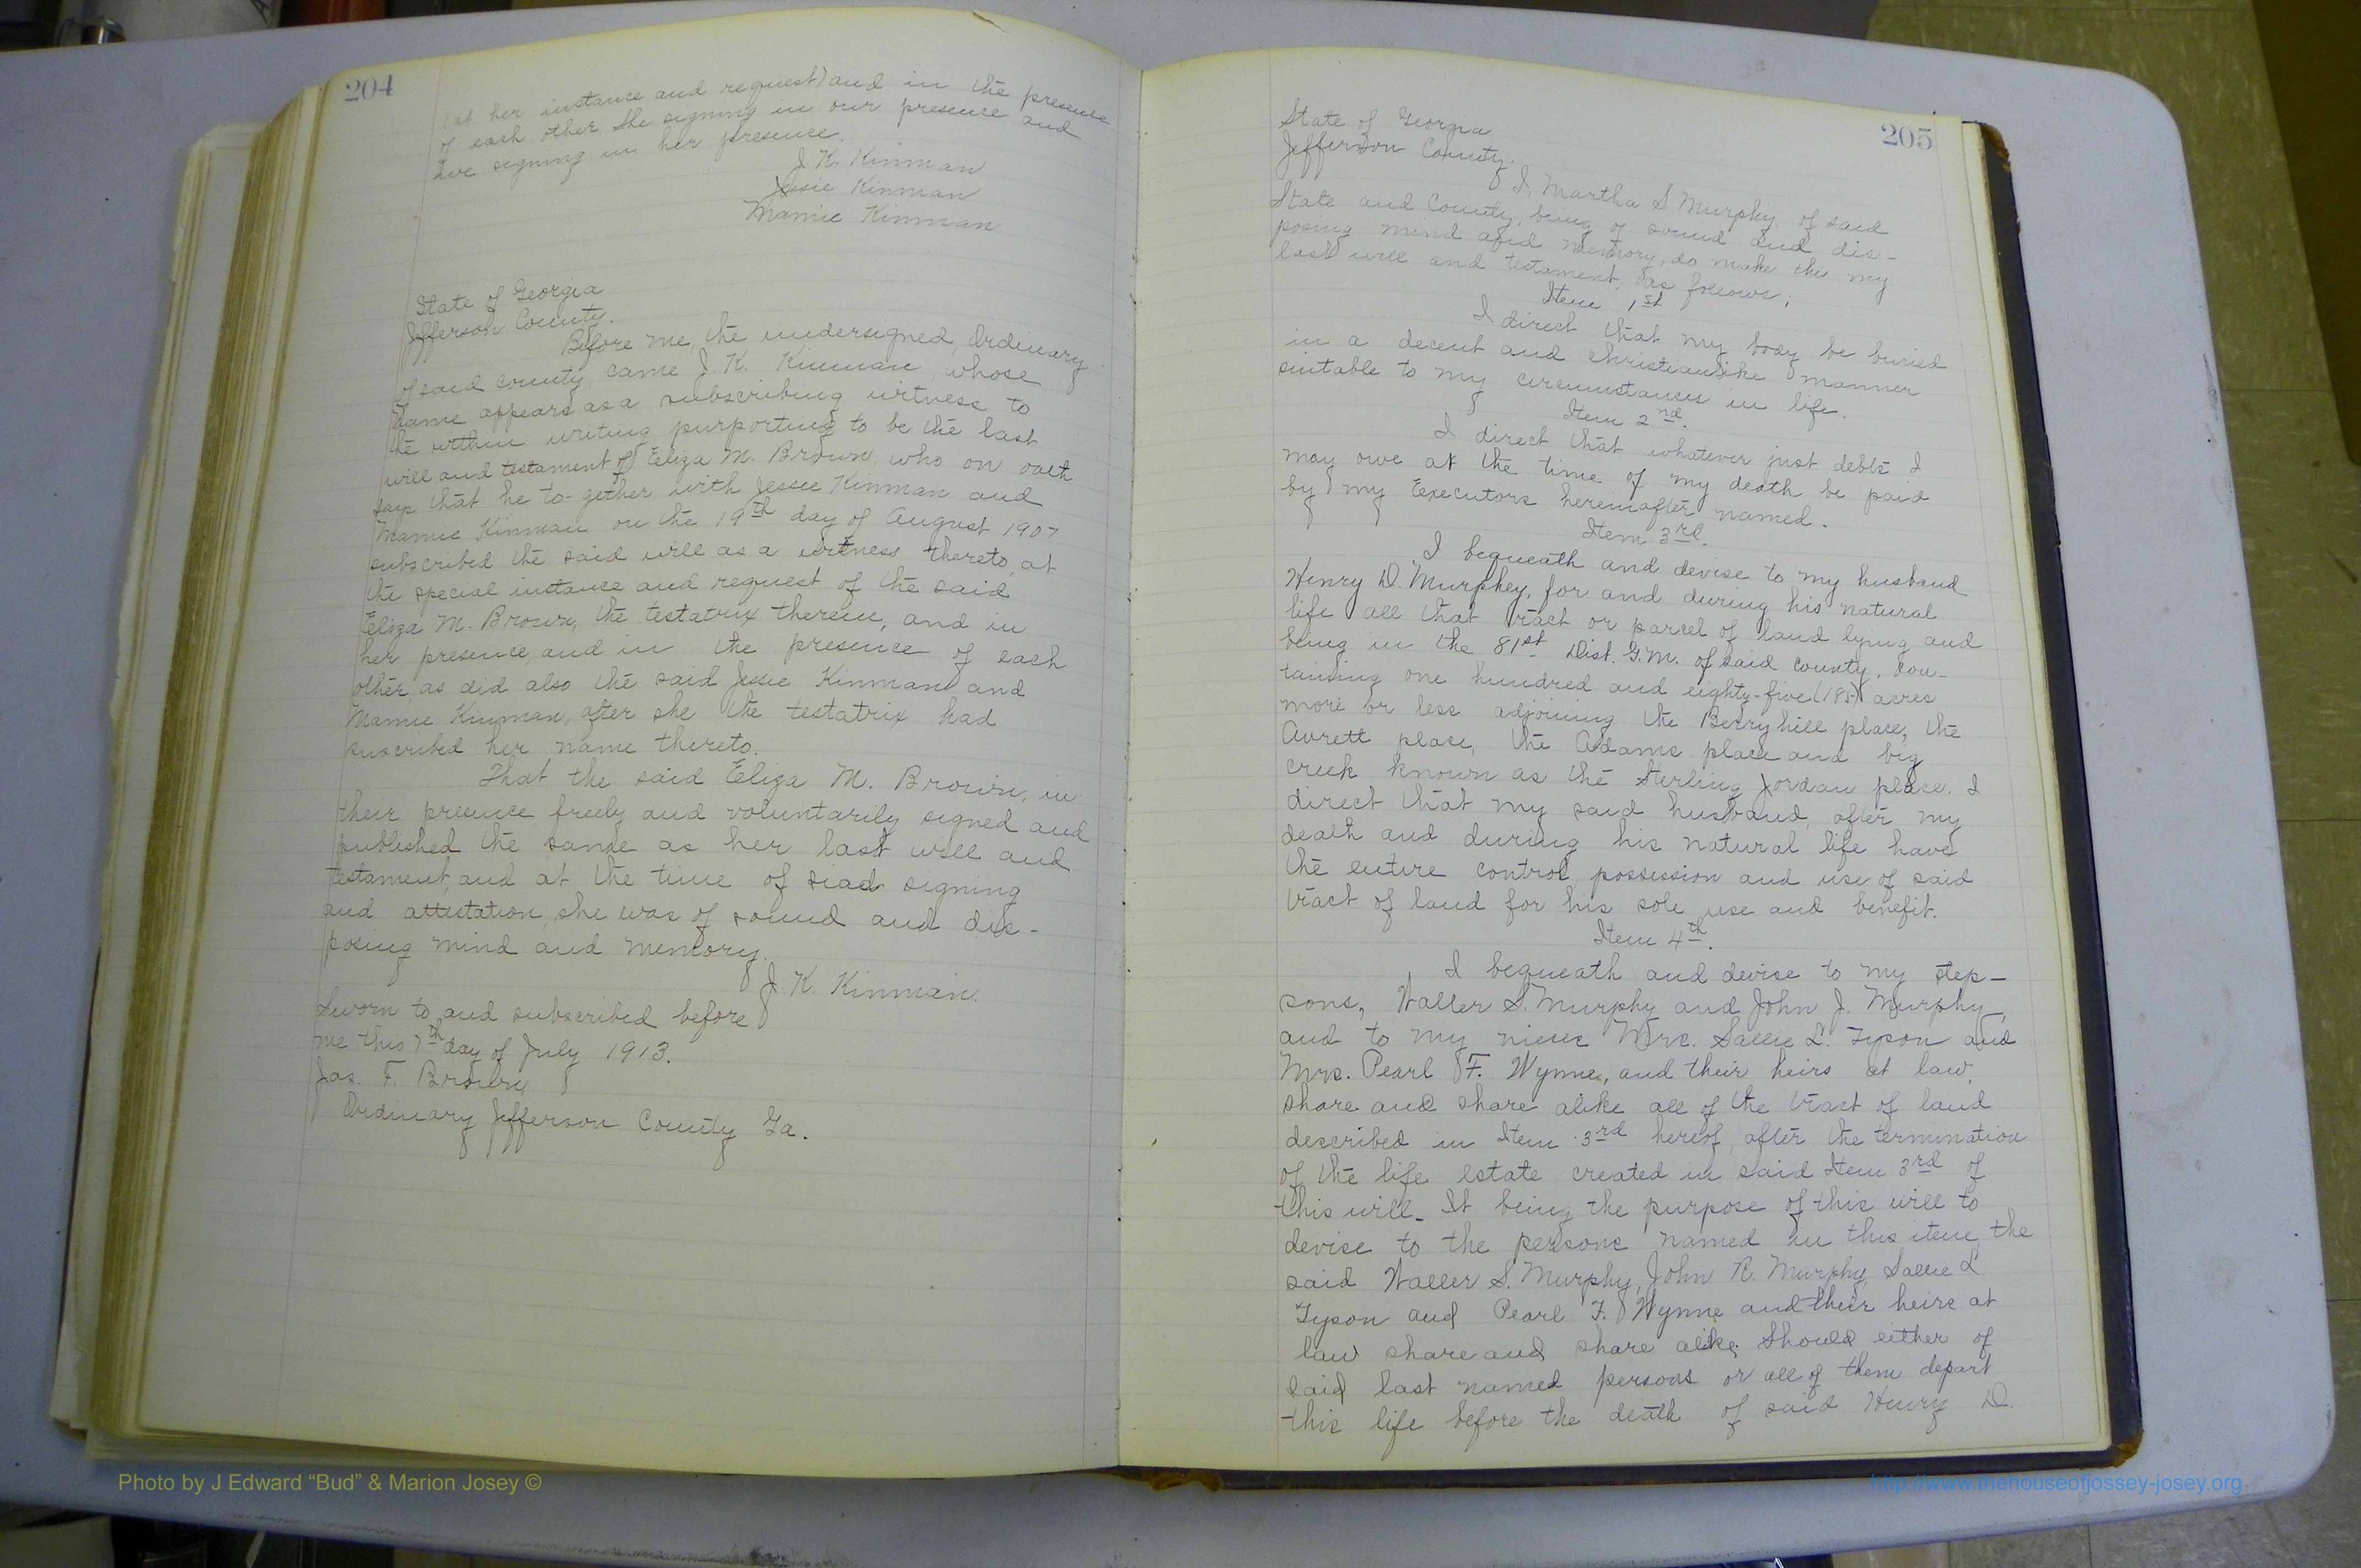 204
(at her instance and request) and in the presence
of each other she signing in our presence and
we signing in her presence.
J. K. Kinman
Jessie Kinman
Mamie Kinman
State of Georgia
Jefferson County.
Before me, the undersigned, Ordinary
of said county, came J. K. Kinman whose
name appears as a subscribing witness to
the within writing purporting to be the last
will and testament of Eliza M. Brown, who on oath
says that he to-gether with Jessie Kinman and
Mamie Kinman on the 19th day of August 1907
subscribed the said will as a witness thereto, at
the special instance and request of the said
Eliza M. Brown, the testatrix therein, and in
her presence, and in the presence of each
other, as did also the said Jessie Kinman and
Mamie Kinman, after she the testatrix had
suscribed her name thereto.
That the said Eliza M. Brown, in
their presence freely and voluntarily signed and
published the same as her last will and
testament, and at the time of siad signing
and attestation, she was of sound and dis-
posing mind and memory.
J. K. Kinman.
Sworn to and subscribed before
me this 7th day of July 1913.
Jas. F. Brown,
Ordinary Jefferson County Ga.
205
State of Georgia
Jefferson County.
I, Martha S Murphy, of said
State and County, being of sound and dis-
posing mind and memory, do make this my
last will and testament, as follows,
Item 1st
I direct that my body be buried
in a decent and christianlike manner
suitable to my circumstances in life.
Item 2nd.
I direct that whatever just debts I
may owe at the time of my death be paid
by my Executors hereinafter named.
Item 3rd.
I bequeath and devise to my husband
Henry D. Murphey, for and during his natural
life all that tract or parcel of land lying and
being in the 81st Dist. G.M. of said county, con-
taining one hundred and eighty-five (185) acres
more or less adjoining the Berryhill place, the
Avrett place, the Adams place and big
creek known as the Sterling Jordan place. I
direct that my said husband, after my
death and during his natural life have
the entire control possession and use of said
tract of land for his sole use and benefit.
Item 4th.
I bequeath and devise to my step-
sons, Waller S. Murphy and John J. Murphy,
and to my nieces Mrs. Sallie L. Tyson and
Mrs. Pearl F. Wynne, and their heirs at law,
share and share alike all of the tract of land
described in Item 3rd hereof, after the termination
of the life estate created in said Item 3rd of
this will. It being the purpose of this will to
devise to the persons named in this item, the
said Waller S. Murphy, John R. Murphy, Sallie L
Tyson and Pearl F. Wynne and their heirs at
law share and share alike. Should either of
said last named persons or all of them depart
this life before the death of said Henry D.
Photo by J Edward “Bud” & Marion Josey ©
http://www.thehouseofjossey-josey.org